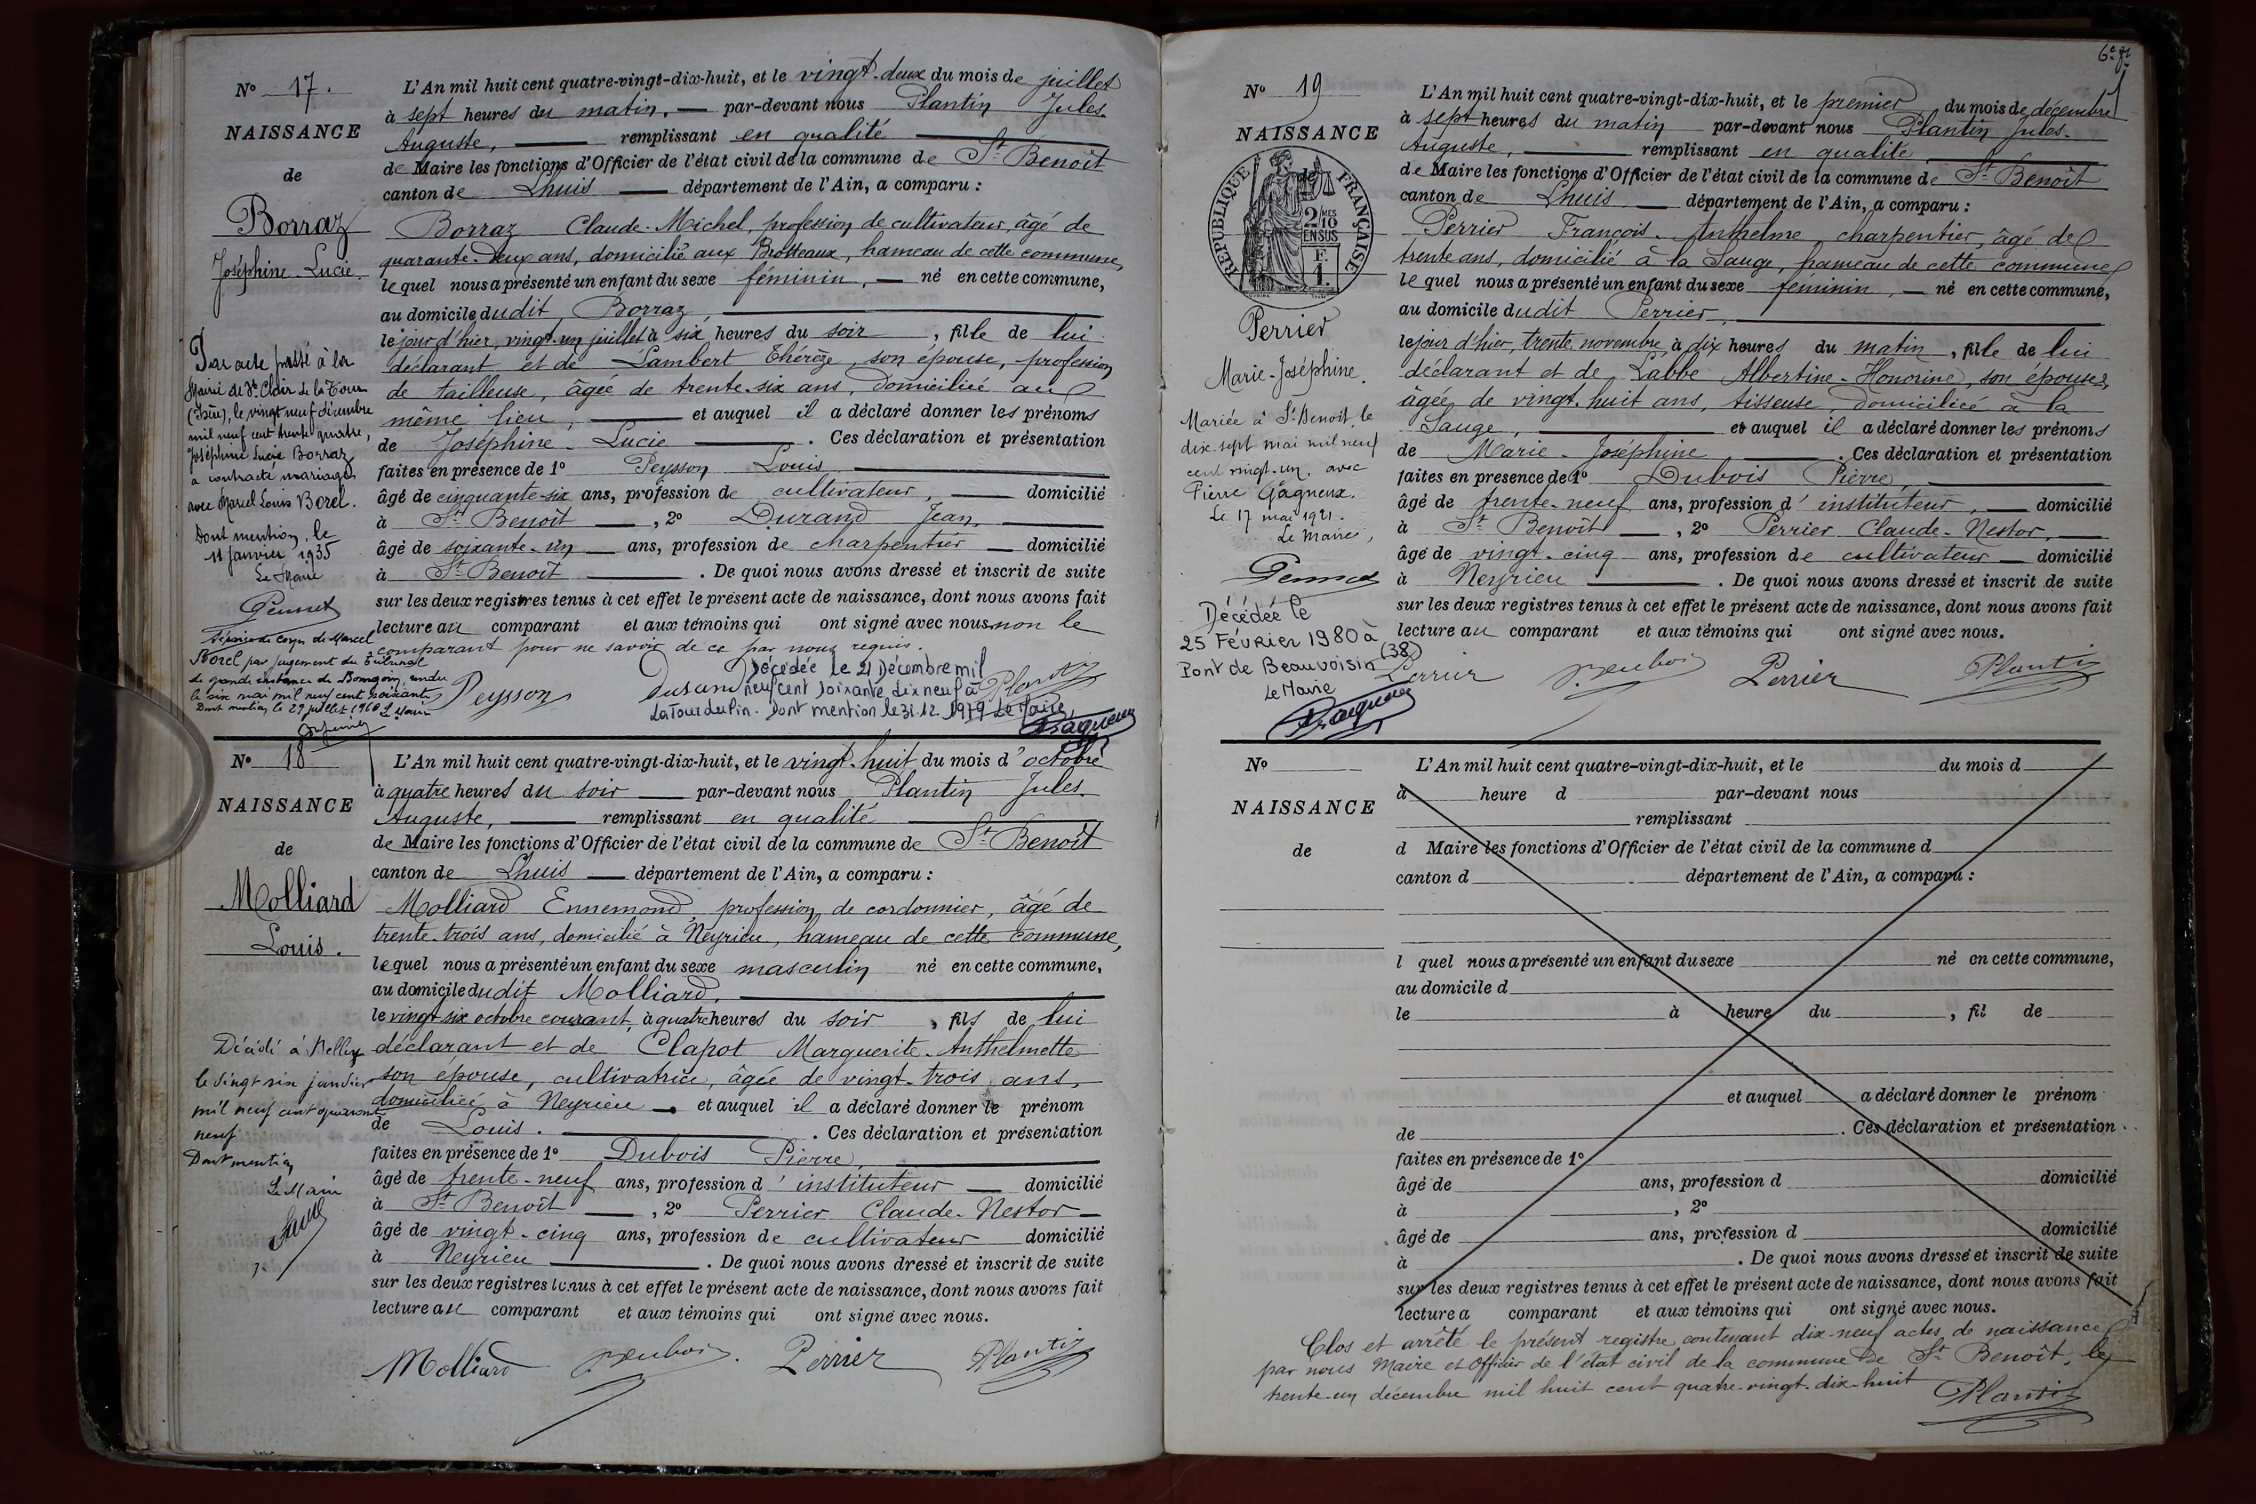 N° 17.
NAISSANCE
de
Borraz
Joséphine-Lucie.
L'An mil huit cent quatre-vingt-dix-huit, et le vingt-deux du mois de juillet
à sept heures du matin, par-devant nous Plantin Jules-
Auguste, remplissant en qualité
de Maire les fonctions d'Officier de l'état civil de la commune de St Benoît
canton de Lhuis département de l'Ain, a comparu :
Borraz Claude-Michel, profession de cultivateur, âgé de
quarante-deux ans, domicilié aux Brotteaux, hameau de cette commune,
lequel nous a présenté un enfant du sexe féminin, né en cette commune,
au domicile dudit Borraz,
le jour d'hier, vingt-un juillet à six heures du soir, fille de lui
déclarant et de Lambert Thérèze, son épouse, profession
de tailleuse, âgée de trente-six ans, domiciliée au
même lieu, et auquel il a déclaré donner les prénoms
de Joséphine-Lucie. Ces déclaration et présentation
faites en présence de 1° Peysson Louis
âgé de cinquante-six ans, profession de cultivateur, domicilié
à St Benoît, 2° Durand Jean,
âgé de soixante-un ans, profession de charpentier domicilié
à St Benoît. De quoi nous avons dressé et inscrit de suite
sur les deux registres tenus à cet effet le présent acte de naissance, dont nous avons fait
lecture au comparant et aux témoins qui ont signé avec nous non le
comparant pour ne savoir de ce par nous requis.
Peysson Durand Plantin
Par acte passé à la
Mairie de St Clair de la Tour
(Isère), le vingt neuf décembre
mil neuf cent trente quatre,
Joséphine Lucie Borraz
a contracté mariage
avec Marcel Louis Borel.
Dont mention, le
11 janvier 1935
Le Maire
Séparée de corps de Marcel
Borel par jugement du Tribunal
de grande instance de Bourgoin, rendu
le six mai mil neuf cent soixante
Dont mention le 29 juillet 1960 Le Maire
Décédée le 21 Décembre mil
neuf cent soixante dix neuf à
La Tour du Pin. Dont mention le 31.12.1979 Le Maire,
N° 18
NAISSANCE
de
Molliard
Louis.
L'An mil huit cent quatre-vingt-dix-huit, et le vingt-huit du mois d'octobre
à quatre heures du soir par-devant nous Plantin Jules-
Auguste, remplissant en qualité
de Maire les fonctions d'Officier de l'état civil de la commune de St Benoît
canton de Lhuis département de l'Ain, a comparu :
Molliard Ennemond, profession de cordonnier, âgé de
trente-trois ans, domicilié à Neyrieu, hameau de cette commune,
lequel nous a présenté un enfant du sexe masculin né en cette commune,
au domicile dudit Molliard,
le vingt-six octobre courant, à quatre heures du soir, fils de lui
déclarant et de Clapot Marguerite-Anthelmette
son épouse, cultivatrice, âgée de vingt-trois ans,
domiciliée à Neyrieu. et auquel il a déclaré donner le prénom
de Louis. Ces déclaration et présentation
faites en présence de 1° Dubois Pierre,
âgé de trente-neuf ans, profession d'instituteur domicilié
à St Benoît, 2° Perrier Claude-Nestor
âgé de vingt-cinq ans, profession de cultivateur domicilié
à Neyrieu. De quoi nous avons dressé et inscrit de suite
sur les deux registres tenus à cet effet le présent acte de naissance, dont nous avons fait
lecture au comparant et aux témoins qui ont signé avec nous.
Molliard P. Dubois. Perrier Plantin
Décédé à Belley
le vingt six janvier
mil neuf cent quarante
neuf
Dont mention
Le Maire
6e f.
N° 19
NAISSANCE
de
RÉPUBLIQUE FRANÇAISE
2/10MES
EN SUS
F.
1.
Perrier
Marie-Joséphine.
L'An mil huit cent quatre-vingt-dix-huit, et le premier du mois de décembre
à sept heures du matin par-devant nous Plantin Jules-
Auguste, remplissant en qualité
de Maire les fonctions d'Officier de l'état civil de la commune de St Benoît
canton de Lhuis département de l'Ain, a comparu :
Perrier François-Anthelme charpentier, âgé de
trente ans, domicilié à la Sauge, hameau de cette commune
lequel nous a présenté un enfant du sexe féminin, né en cette commune,
au domicile dudit Perrier,
le jour d'hier, trente novembre à dix heures du matin, fille de lui
déclarant et de Labbe Albertine-Honorine, son épouse,
âgée de vingt-huit ans, tisseuse, domiciliée à la
Sauge, et auquel il a déclaré donner les prénoms
de Marie-Joséphine. Ces déclaration et présentation
faites en présence de 1° Dubois Pierre,
âgé de trente-neuf ans, profession d'instituteur, domicilié
à St Benoît, 2° Perrier Claude-Nestor,
âgé de vingt-cinq ans, profession de cultivateur domicilié
à Neyrieu. De quoi nous avons dressé et inscrit de suite
sur les deux registres tenus à cet effet le présent acte de naissance, dont nous avons fait
lecture au comparant et aux témoins qui ont signé avec nous.
Perrier P. Dubois Perrier Plantin
Mariée à St Benoit, le
dix sept mai mil neuf
cent vingt-un, avec
Pierre Gagneux.
Le 17 mai 1921.
Le Maire,
Décédée le
25 Février 1980 à
Pont de Beauvoisin (38)
Le Maire
N°
NAISSANCE
de
L'An mil huit cent quatre-vingt-dix-huit, et le du mois d
à heure d par-devant nous
remplissant
d Maire les fonctions d'Officier de l'état civil de la commune d
canton d département de l'Ain, a comparu :
l quel nous a présenté un enfant du sexe né en cette commune,
au domicile d
le à heure du , fil de
et auquel a déclaré donner le prénom
de . Ces déclaration et présentation
faites en présence de 1°
âgé de ans, profession d domicilié
à , 2°
âgé de ans, profession d domicilié
à . De quoi nous avons dressé et inscrit de suite
sur les deux registres tenus à cet effet le présent acte de naissance, dont nous avons fait
lecture a comparant et aux témoins qui ont signé avec nous.
Clos et arrêté le présent registre contenant dix-neuf actes de naissance
par nous Maire et Officier de l'état civil de la commune de St Benoît, le
trente-un décembre mil huit cent quatre-vingt-dix-huit
Plantin